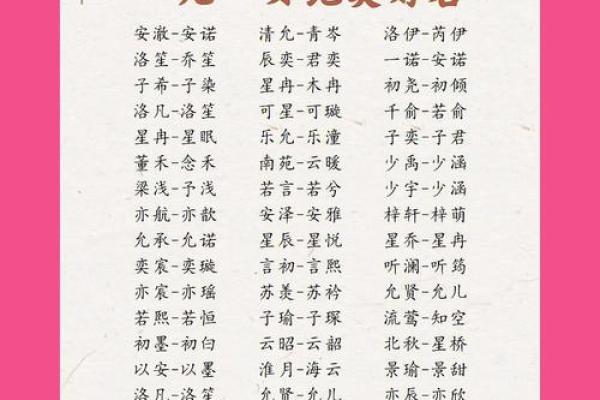 安澈-安诺 清允-青岑 洛伊-芮伊
洛笙-乔笙 辰奕-君奕 一诺-安诺
子希-子染 星冉-木冉 初尧-初倾
洛凡-洛笙 可星-可璇 千俞-若俞
星冉-星眠 乐允-乐潼 子奕-子君
董禾-念禾 南苑-云暖 少禹-少涵
梁浅-予浅 若言-若兮 少宇-少涵
亦航-亦歆 安泽-安雅 梓轩-梓萌
允承-允诺 星辰-星悦 星乔-星冉
奕宸-奕璇 言初-言熙 听澜-听筠
亦宸-亦瑶 苏羡-苏衿 允贤-允儿
若熙-若恒 子瑜-子琛 流莺-知空
初墨-初白 云昭-云韶 北秋-星桥
以安-以墨 淮月-海云 景瑜-景甜
洛凡-洛笙 允贤-允儿 亦辰-亦欣